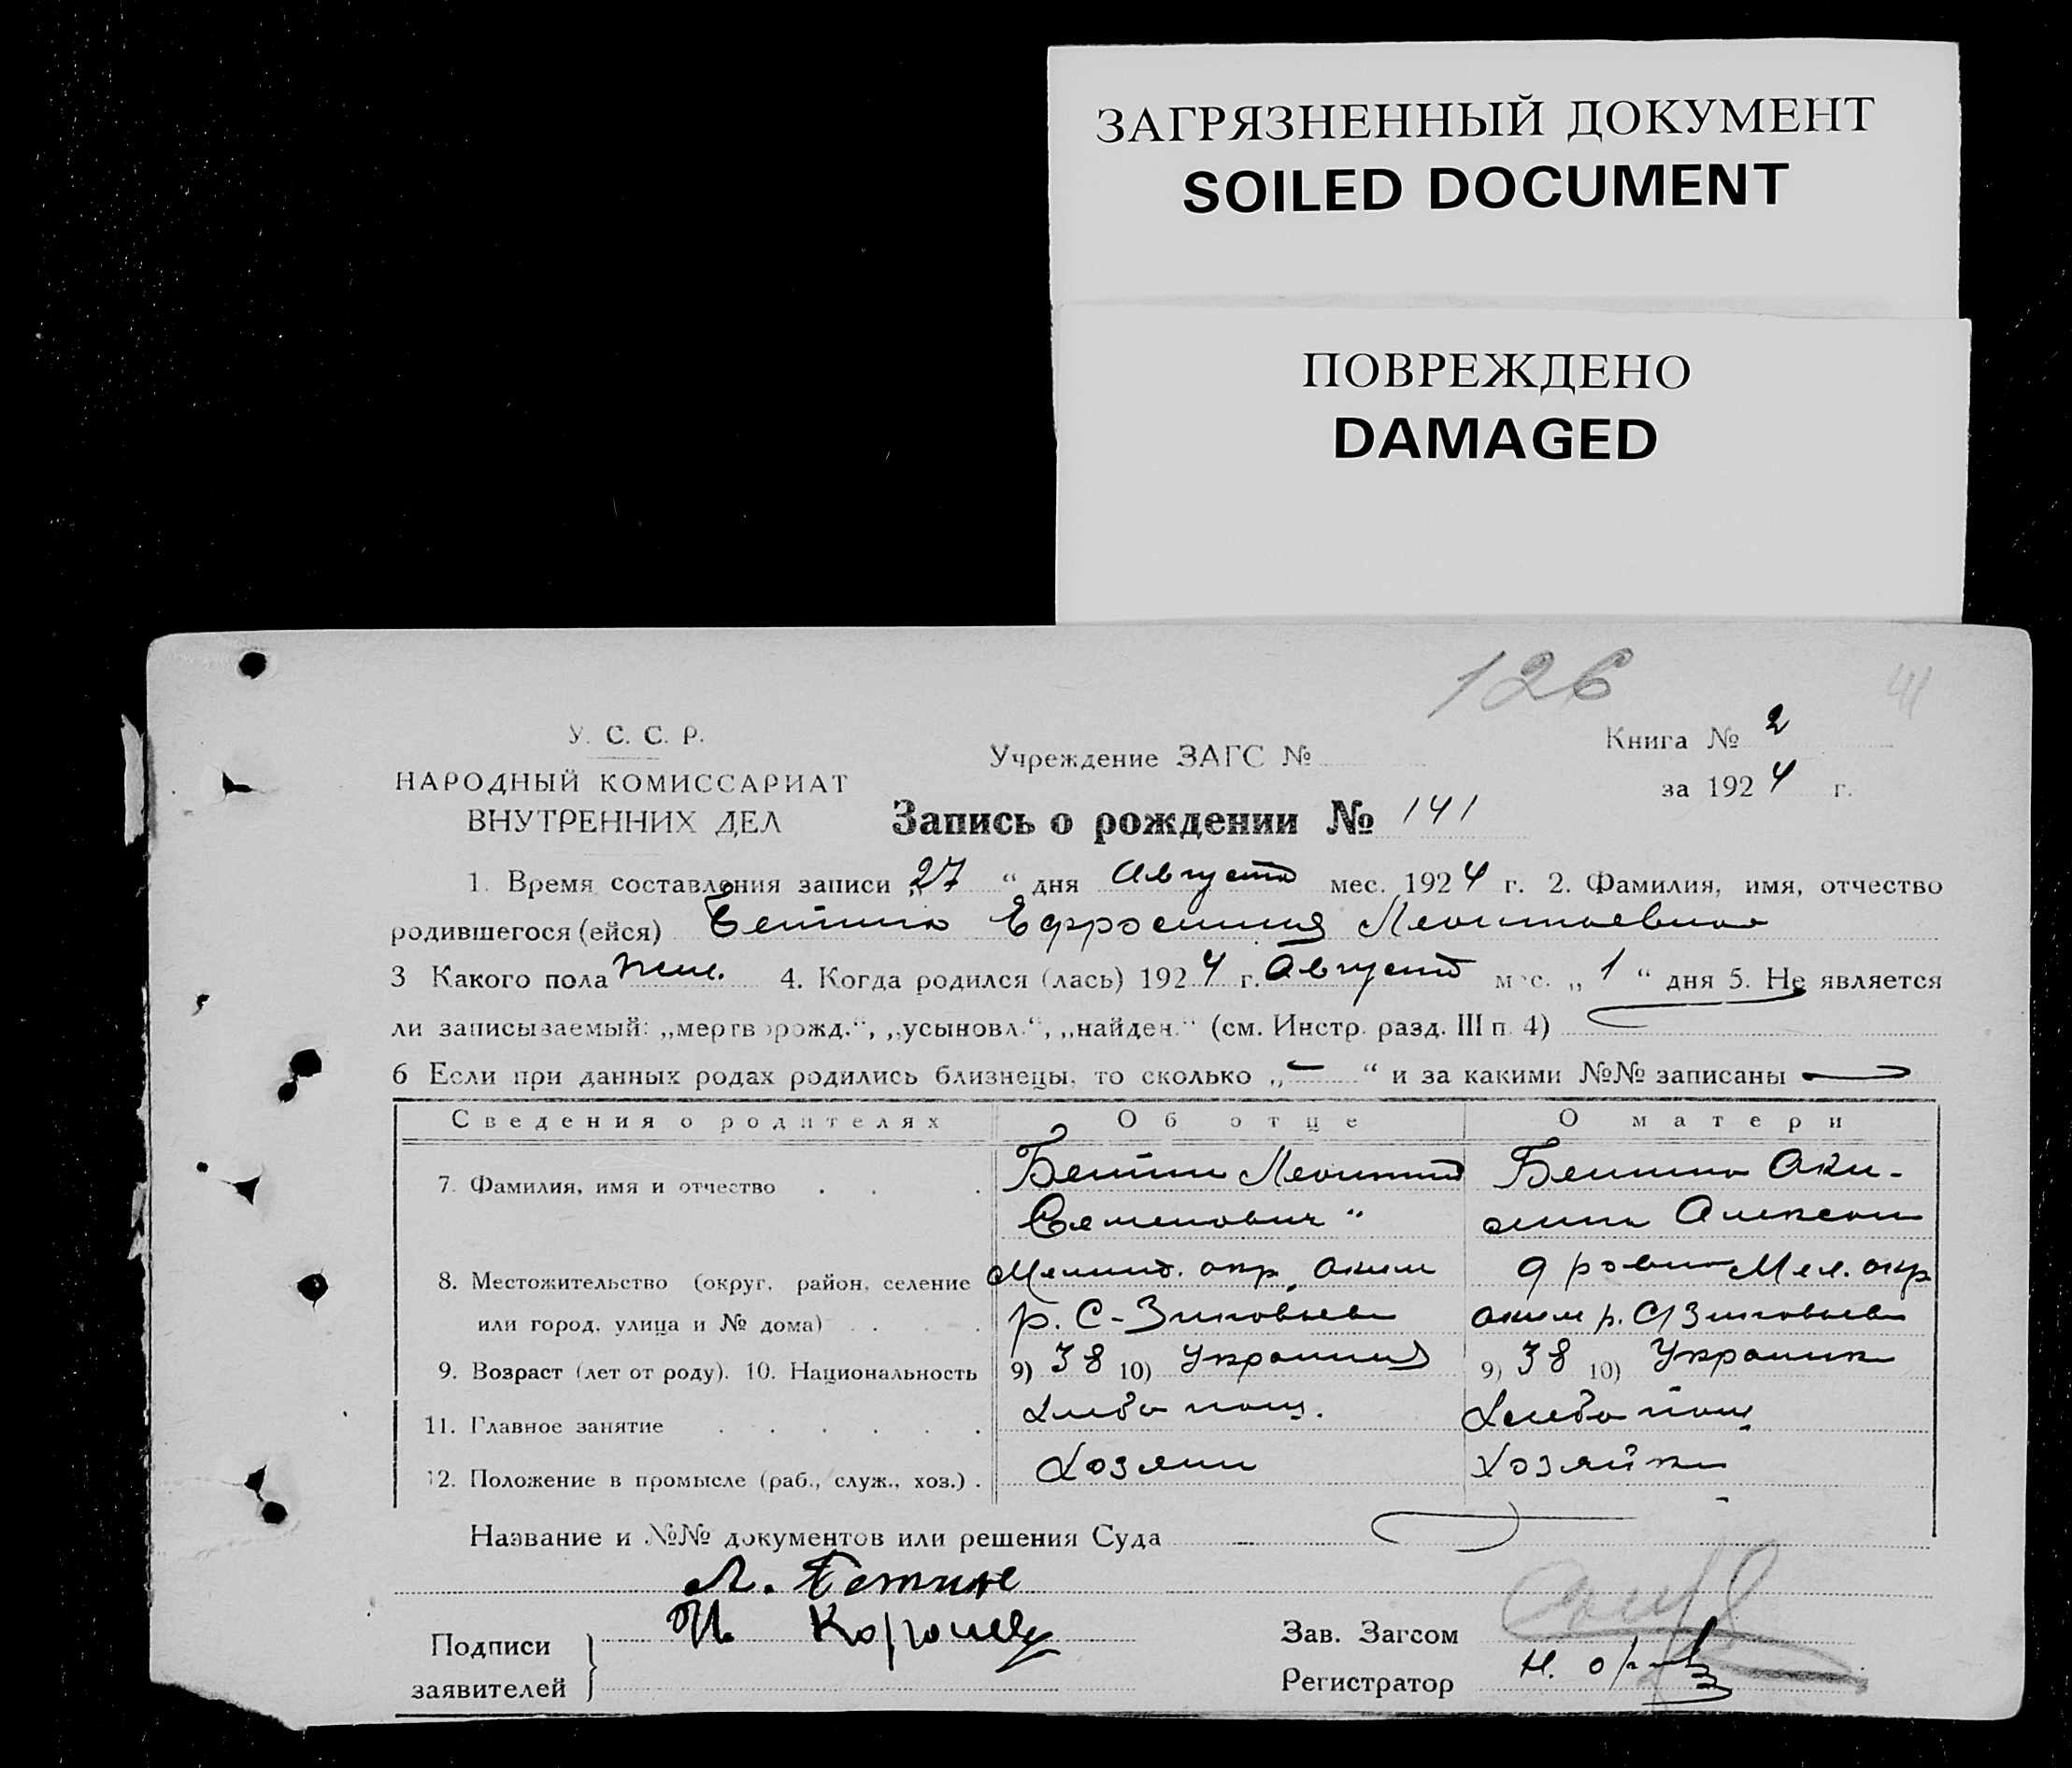 ЗАГРЯЗНЕННЫЙ ДОКУМЕНТ
SOILED DOCUMENT
ПОВРЕЖДЕНО
DAMAGED
126
41
У. С. С. Р.
НАРОДНЫЙ КОМИССАРИАТ
ВНУТРЕННИХ ДЕЛ
Учреждение ЗАГС №
Книга № 2
за 1924 г.
Запись о рождении № 141
1. Время составления записи „27“ дня Августа мес. 1924 г. 2. Фамилия, имя, отчество
родившегося (ейся) Бетина Ефросиния Леонтьевна
3 Какого пола жен. 4. Когда родился (лась) 1924 г. Августа мес. „1“ дня 5. Не является
ли записываемый: „мертворожд.“, „усыновл.“, „найден.“ (см. Инстр. разд. III п. 4)
6 Если при данных родах родились близнецы, то сколько „—“ и за какими №№ записаны —
Сведения о родителях Об отце О матери
7. Фамилия, имя и отчество Бетин Леонтий Бетина Аки-
Семенович
8. Местожительство (округ, район, селение Мелит. окр. Аким Мел. окр
или город, улица и № дома) р. С-Зиновьев Аким р. С/Зиновьев
9. Возраст (лет от роду). 10. Национальность 9) 38 10) Украинец 9) 38 10) Украинк
11. Главное занятие Хлебопаш. Хлебопаш
12. Положение в промысле (раб., служ., хоз.) Хозяин Хозяйка
Название и №№ документов или решения Суда
Л. Бетин
Подписи
заявителей
Зав. Загсом
Регистратор